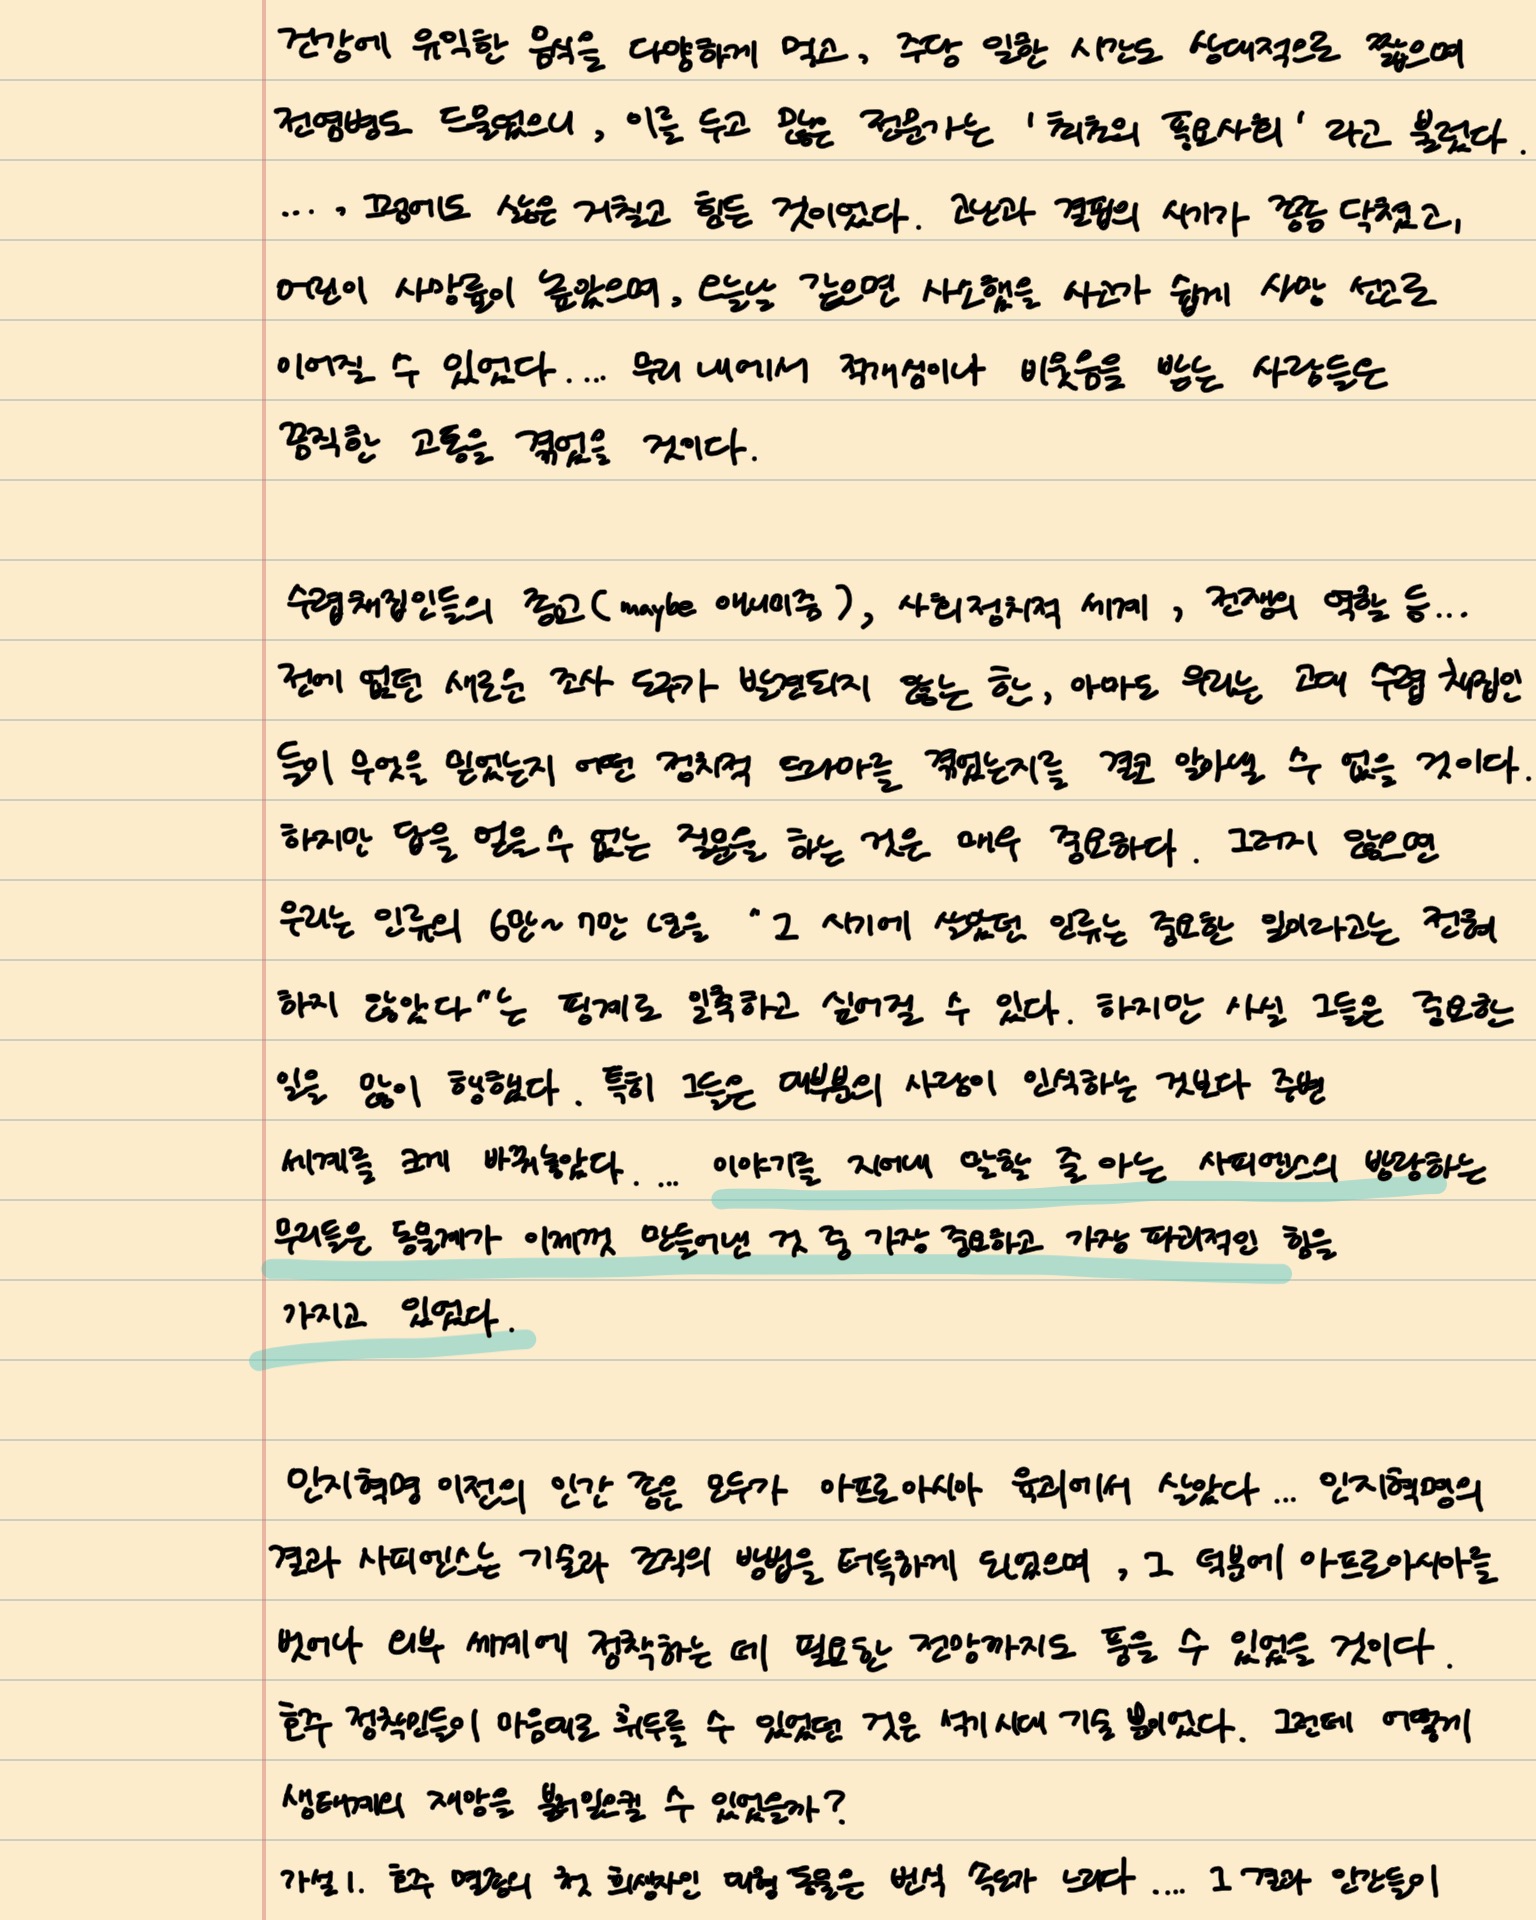 건강에 유익한 음식을 다양하게 먹고, 주당 일한 시간도 상대적으로 짧으며
전염병도 드물었으니, 이를 두고 많은 전문가는 '최초의 풍요사회' 라고 불렀다.
..., 그럼에도 삶은 거칠고 힘든 것이었다. 고난과 결핍의 시기가 종종 닥쳤고,
어린이 사망률이 높았으며, 오늘날 같으면 사소했을 사고가 쉽게 사망 선고로
이어질 수 있었다.... 무리 내에서 적개심이나 비웃음을 받는 사람들은
끔찍한 고통을 겪었을 것이다.
수렵채집인들의 종교(maybe 애니미즘), 사회정치적 세계, 전쟁의 역할 등...
전에 없던 새로운 조사 도구가 발견되지 않는 한, 아마도 우리는 고대 수렵 채집인
들이 무엇을 믿었는지 어떤 정치적 드라마를 겪었는지를 결코 알아낼 수 없을 것이다.
하지만 답을 얻을 수 없는 질문을 하는 것은 매우 중요하다. 그러지 않으면
우리는 인류의 6만~7만 년을 "그 시기에 살았던 인류는 중요한 일이라고는 전혀
하지 않았다"는 핑계로 일축하고 싶어질 수 있다. 하지만 사실 그들은 중요한
일을 많이 행했다. 특히 그들은 대부분의 사람이 인식하는 것보다 주변
세계를 크게 바꿔놓았다. ... 이야기를 지어내 말할 줄 아는 사피엔스의 방랑하는
무리들은 동물계가 이제껏 만들어낸 것 중 가장 중요하고 가장 파괴적인 힘을
가지고 있었다.
인지혁명 이전의 인간 종은 모두가 아프로아시아 육괴에서 살았다 ... 인지혁명의
결과 사피엔스는 기술과 조직의 방법을 터득하게 되었으며, 그 덕분에 아프로아시아를
벗어나 외부 세계에 정착하는 데 필요한 전망까지도 품을 수 있었을 것이다.
호주 정착인들이 마음대로 휘두를 수 있었던 것은 석기시대 기술 뿐이었다. 그런데 어떻게
생태계의 재앙을 불러일으킬 수 있었을까?
가설 1. 호주 멸종의 첫 희생자인 대형 동물은 번식 속도가 느리다 .... 그 결과 인간들이